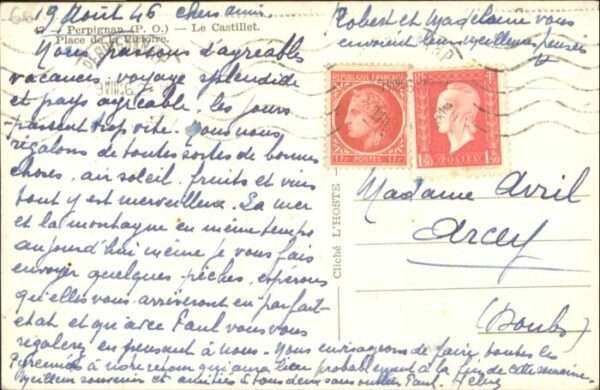 19 Août 46 chers amis
Perpignan (P. O.) — Le Castillet.
Place de la Victoire.
Nous passons d'agréables
vacances, voyage splendide
et pays agréable. les jours
passent trop vite. Nous nous
régalons de toutes sortes de bonnes
choses, air soleil, fruits et vins
tout y est merveilleux. La mer
et la montagne en même temps
aujourd'hui même je vous fais
envoyer quelques pêches, espérons
qu'elles vous arriveront en parfait
état et qu'avec Paul vous vous
régalerez en pensant à nous. Nous envisageons de faire toutes les
Pyrénées à notre retour qui aura lieu probablement à la fin de cette semaine.
Meilleurs souvenirs et amitiés à tous deux sans oublier Paul.
Robert et Madeleine vous
envoient leurs meilleures pensées
REPUBLIQUE FRANÇAISE
1F POSTES 1F
1F50 POSTES 1F50
Cliché L'HOSTE
Madame Avril
Arcey
(Doubs)